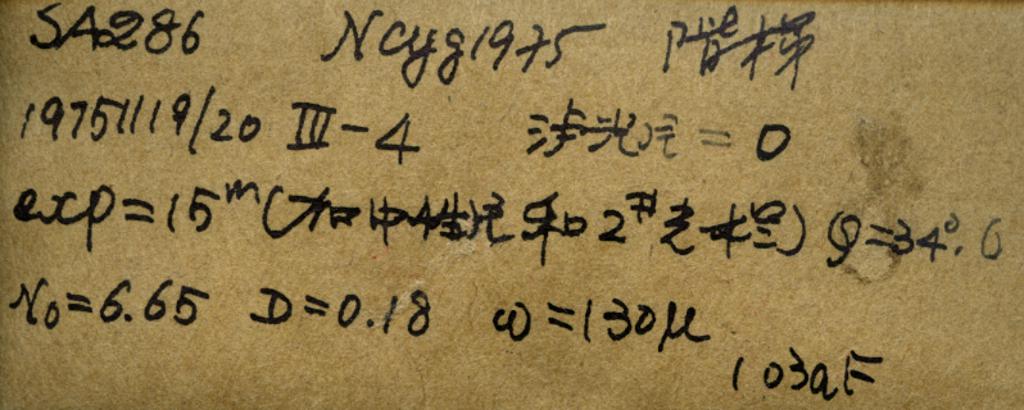 SA286 NCyg1975 阶梯
19751119/20 III-4 =0
exp=15ᵐ(加中性 和2# ) φ=34°.6
N₀=6.65 D=0.18 ω=130μ
103aF